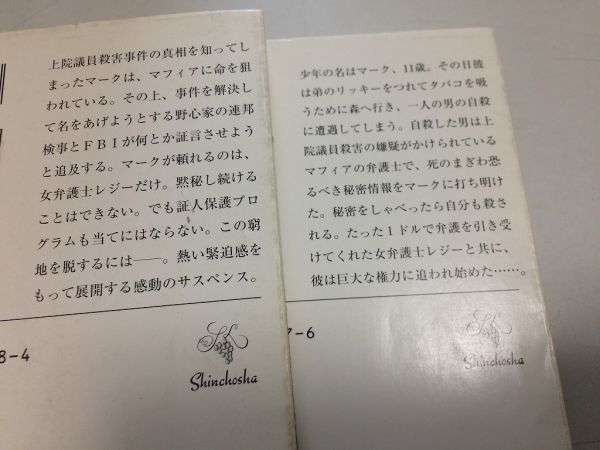 上院議員殺害事件の真相を知ってし
まったマークは、マフィアに命を狙
われている。その上、事件を解決し
て名をあげようとする野心家の連邦
検事とＦＢＩが何とか証言させよう
と追及する。マークが頼れるのは、
女弁護士レジーだけ。黙秘し続ける
ことはできない。でも証人保護プロ
グラムも当てにはならない。この窮
地を脱するには――。熱い緊迫感を
もって展開する感動のサスペンス。
8-4
Shinchosha
少年の名はマーク、11歳。その日彼
は弟のリッキーをつれてタバコを吸
うために森へ行き、一人の男の自殺
に遭遇してしまう。自殺した男は上
院議員殺害の嫌疑がかけられている
マフィアの弁護士で、死のまぎわ恐
るべき秘密情報をマークに打ち明け
た。秘密をしゃべったら自分も殺さ
れる。たった１ドルで弁護を引き受
けてくれた女弁護士レジーと共に、
彼は巨大な権力に追われ始めた……。
7-6
Shinchosha